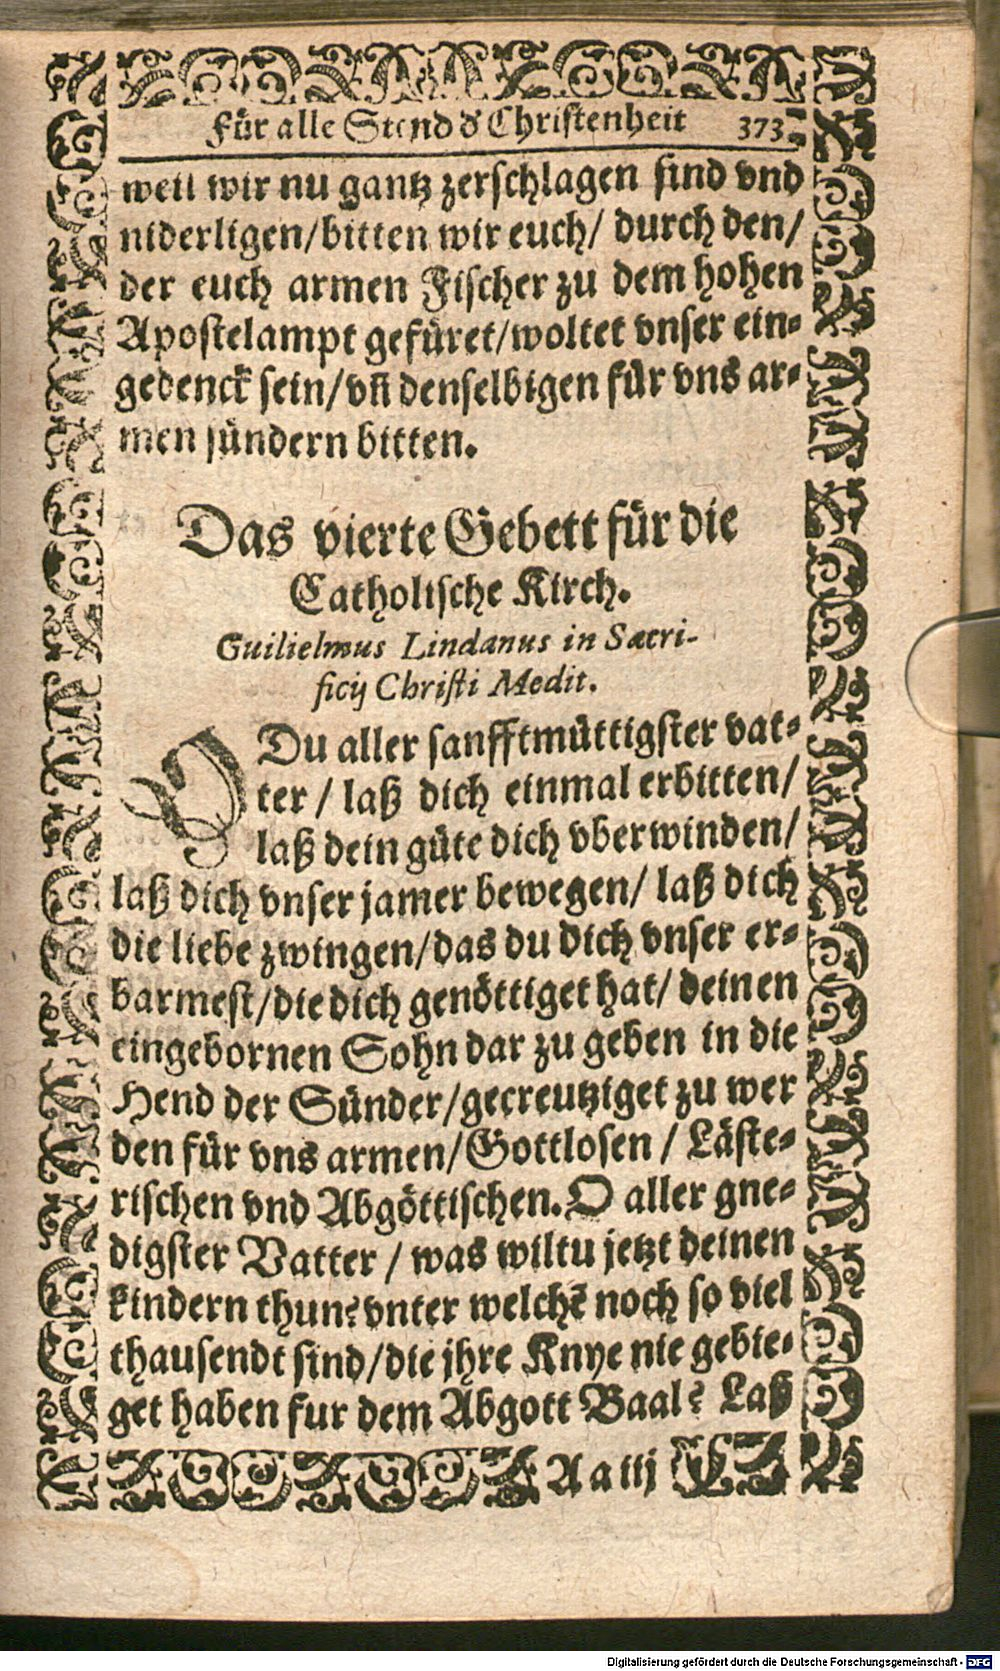 Für alle Stend d' Christenheit 373
weil wir nu gantz zerschlagen sind vnd
niderligen/bitten wir euch/ durch den/
der euch armen Fischer zu dem hohen
Apostelampt gefüret/woltet vnser ein-
gedenck sein/vñ denselbigen für vns ar-
men sündern bitten.
Das vierte Gebett für die
Catholische Kirch.
Guilielmus Lindanus in Sacri-
ficij Christi Medit.
O Du aller sanfftmüttigster vat-
ter / laß dich einmal erbitten/
laß dein güte dich vberwinden/
laß dich vnser jamer bewegen/ laß dich
die liebe zwingen/das du dich vnser er-
barmest/die dich genöttiget hat/ deinen
eingebornen Sohn dar zu geben in die
Hend der Sünder/gecreutziget zu wer
den für vns armen/Gottlosen / Läste-
rischen vnd Abgöttischen. O aller gne-
digster Vatter / was wiltu jetzt deinen
kindern thun? vnter welchē noch so viel
thausendt sind/die jhre Knye nie gebie-
get haben fur dem Abgott Baal? Laß
A a iij
Digitalisierung gefördert durch die Deutsche Forschungsgemeinschaft - DFG